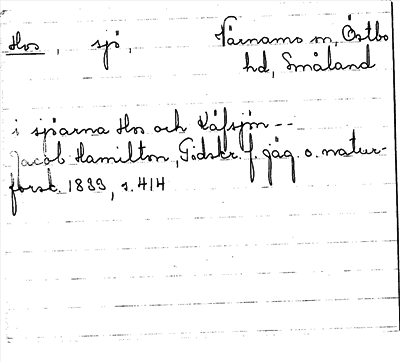 Hos, sjö, Värnamo sn, Östbo
hd, Småland
i sjöarna Hos och Låfsjön --
Jacob Hamilton, Tidskr. f. jäg. o. natur-
forsk. 1833, s. 414